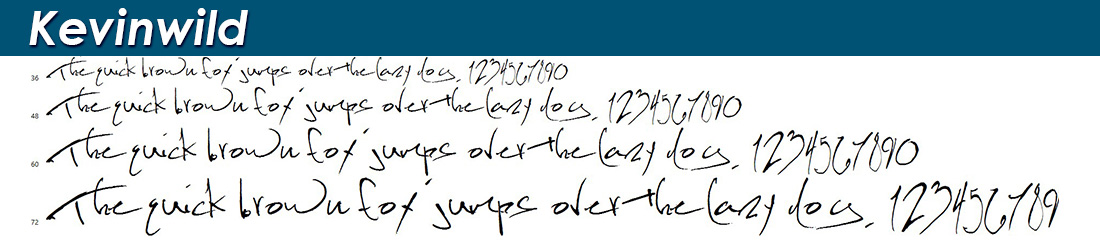 Kevinwild
36 The quick brown fox jumps over the lazy dog. 1234567890
48 The quick brown fox jumps over the lazy dog. 1234567890
60 The quick brown fox jumps over the lazy dog. 1234567890
72 The quick brown fox jumps over the lazy dog. 123456789